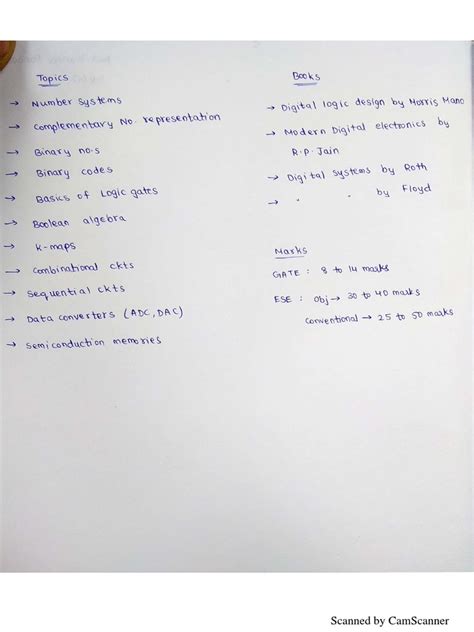 Topics
→ Number Systems
→ Complementary No. representation
→ Binary no.s
→ Binary codes
→ Basics of Logic gates
→ Boolean algebra
→ K-maps
→ Combinational ckts
→ Sequential ckts
→ Data converters (ADC, DAC)
→ Semiconduction memories
Books
→ Digital logic design by Morris Mano
→ Modern Digital electronics by
R.P. Jain
→ Digital systems by Roth
→ " " by Floyd
Marks
GATE : 8 to 14 marks
ESE : Obj → 30 to 40 marks
Conventional → 25 to 50 marks
Scanned by CamScanner